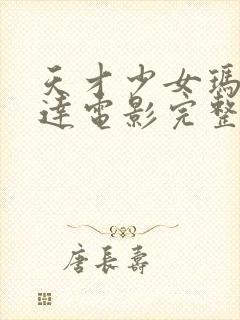 天才少女瑪
達電影完整
唐長壽